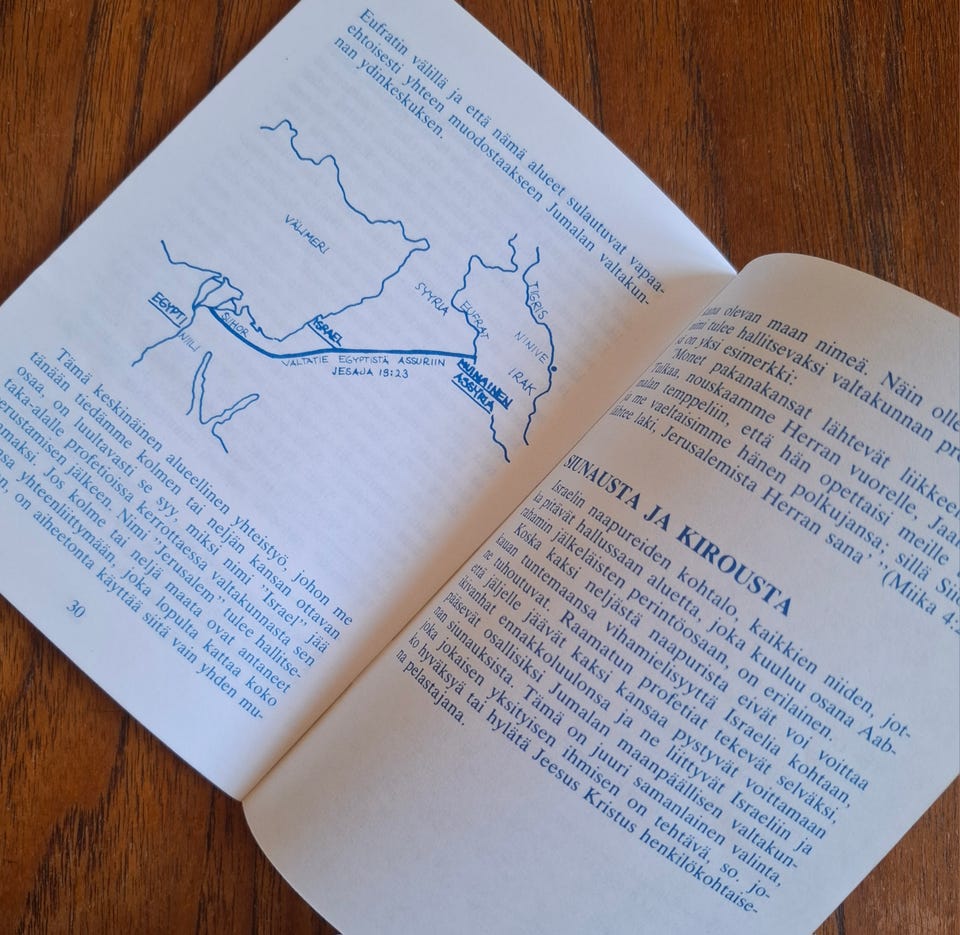 Eufratin välillä ja että nämä alueet sulautuvat vapaa-
ehtoisesti yhteen muodostaakseen Jumalan valtakun-
nan ydinkeskuksen.
VÄLIMERI
SYYRIA
EUFRAT
TIGRIS
NINIVE
IRAK
EGYPTI
NIILI
SIHOR
ISRAEL
VALTATIE EGYPTISTÄ ASSURIIN
JESAJA 19:23
MUINAINEN
ASSYRIA
Tämä keskinäinen alueellinen yhteistyö, johon me
tänään tiedämme kolmen tai neljän kansan ottavan
osaa, on luultavasti se syy, miksi nimi "Israel" jää
taka-alalle profetioissa kerrottaessa valtakunnasta sen
perustamisen jälkeen. Nimi "Jerusalem" tulee hallitse-
maksi. Jos kolme tai neljä maata ovat antaneet
yhteenliittymään, joka lopulta kattaa koko
on aiheetonta käyttää siitä vain yhden mu-
30
olevan maan nimeä. Näin
tulee hallitsevaksi valtakunnan
on yksi esimerkki:
"Monet pakanakansat lähtevät
Tulkaa, nouskaamme Herran vuorelle,
temppeliin, että hän opettaisi meille
ja me vaeltaisimme hänen polkujansa, sillä
lähtee laki, Jerusalemista Herran sana" (Miika 4:2
SIUNAUSTA JA KIROUSTA
Israelin naapureiden kohtalo, kaikkien niiden, jot-
ka pitävät hallussaan aluetta, joka kuuluu osana Aab-
rahamin jälkeläisten perintöosaan, on erilainen.
Koska kaksi neljästä naapurista eivät voi voittaa
kauan tuntemaansa vihamielisyyttä Israelia kohtaan,
ne tuhoutuvat. Raamatun profetiat tekevät selväksi,
että jäljelle jäävät kaksi kansaa pystyvät voittamaan
ikivanhat ennakkoluulonsa ja ne liittyvät Israeliin ja
pääsevät osallisiksi Jumalan maanpäällisen valtakun-
nan siunauksista. Tämä on juuri samanlainen valinta,
joka jokaisen yksityisen ihmisen on tehtävä, so. jo-
ko hyväksyä tai hylätä Jeesus Kristus henkilökohtaise-
na pelastajana.